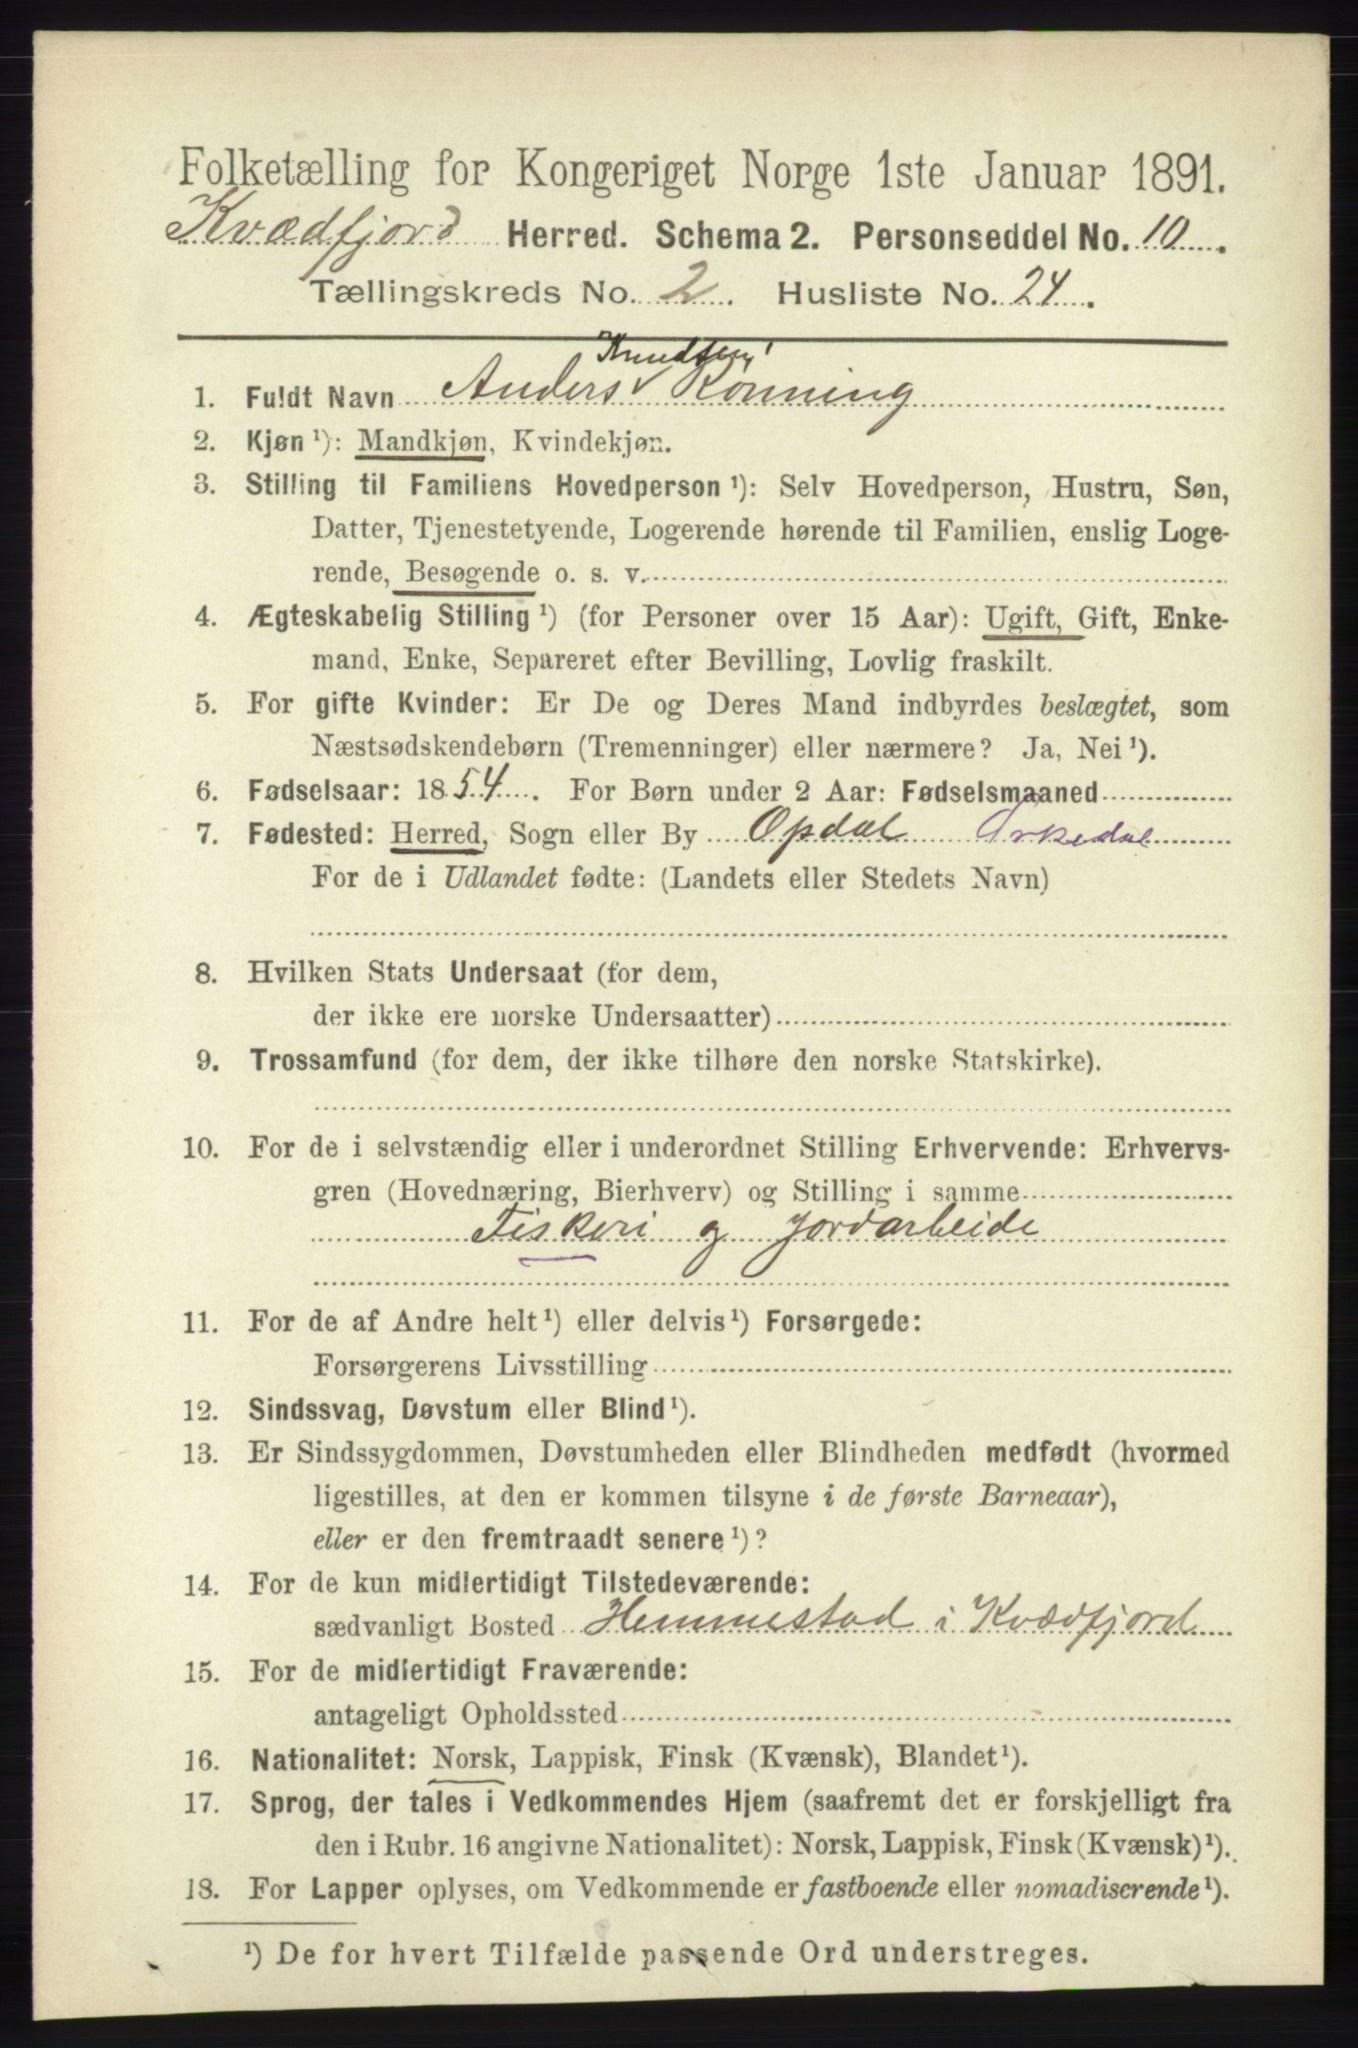 Folketælling for Kongeriget Norge 1ste Januar 1891.
Kvædfjord Herred. Schema 2. Personseddel No. 10.
Tællingskreds No. 2. Husliste No. 24.
Knudsen
1. Fuldt Navn Anders Rønning
2. Kjøn ¹): Mandkjøn, Kvindekjøn.
3. Stilling til Familiens Hovedperson ¹): Selv Hovedperson, Hustru, Søn,
Datter, Tjenestetyende, Logerende hørende til Familien, enslig Loge-
rende, Besøgende o. s. v.
4. Ægteskabelig Stilling ¹) (for Personer over 15 Aar): Ugift, Gift, Enke-
mand, Enke, Separeret efter Bevilling, Lovlig fraskilt.
5. For gifte Kvinder: Er De og Deres Mand indbyrdes beslægtet, som
Næstsødskendebørn (Tremenninger) eller nærmere? Ja, Nei ¹).
6. Fødselsaar: 1854. For Børn under 2 Aar: Fødselsmaaned
7. Fødested: Herred, Sogn eller By Opdal Orkedal
For de i Udlandet fødte: (Landets eller Stedets Navn)
8. Hvilken Stats Undersaat (for dem,
der ikke ere norske Undersaatter)
9. Trossamfund (for dem, der ikke tilhøre den norske Statskirke).
10. For de i selvstændig eller i underordnet Stilling Erhvervende: Erhvervs-
gren (Hovednæring, Bierhverv) og Stilling i samme
Fiskeri og Jordarbeide
11. For de af Andre helt ¹) eller delvis ¹) Forsørgede:
Forsørgerens Livsstilling
12. Sindssvag, Døvstum eller Blind ¹).
13. Er Sindssygdommen, Døvstumheden eller Blindheden medfødt (hvormed
ligestilles, at den er kommen tilsyne i de første Barneaar),
eller er den fremtraadt senere ¹)?
14. For de kun midlertidigt Tilstedeværende:
sædvanligt Bosted Hemmestad i Kvædfjord
15. For de midlertidigt Fraværende:
antageligt Opholdssted
16. Nationalitet: Norsk, Lappisk, Finsk (Kvænsk), Blandet ¹).
17. Sprog, der tales i Vedkommendes Hjem (saafremt det er forskjelligt fra
den i Rubr. 16 angivne Nationalitet): Norsk, Lappisk, Finsk (Kvænsk) ¹).
18. For Lapper oplyses, om Vedkommende er fastboende eller nomadiserende ¹).
¹) De for hvert Tilfælde passende Ord understreges.